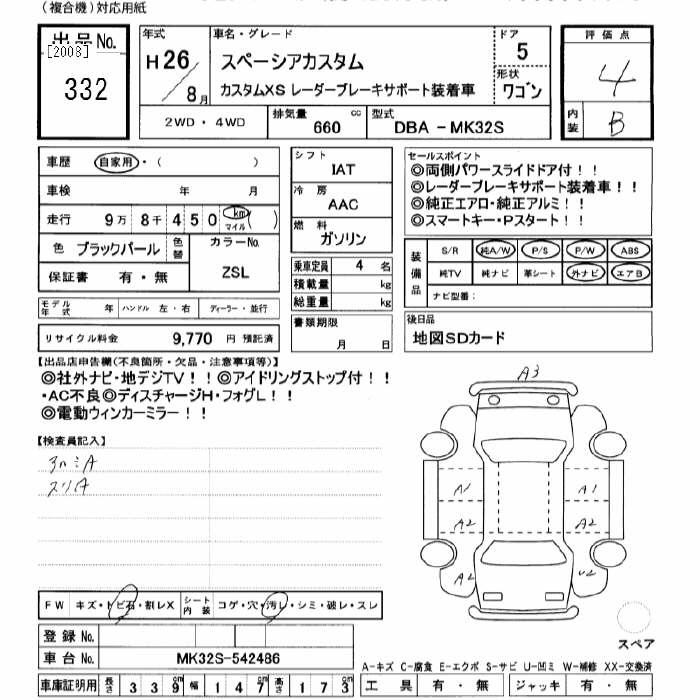 (複合機)対応用紙
出品No.
[2008]
332
年式
H26
8月
車名・グレード
スペーシアカスタム
カスタムXS レーダーブレーキサポート装着車
ドア
5
形状
ワゴン
評価点
4
内装
B
2WD・4WD
排気量
660
cc
型式
DBA - MK32S
車歴 自家用・( )
車検 年 月
走行 9万 8千 4 5 0 km マイル ( )
色 ブラックパール
色替
カラーNo.
ZSL
保証書 有・無
シフト
IAT
冷房
AAC
燃料
ガソリン
乗車定員 4 名
積載量 kg
総重量 kg
書類期限
月 日
セールスポイント
◎両側パワースライドドア付!!
◎レーダーブレーキサポート装着車!!
◎純正エアロ・純正アルミ!!
◎スマートキー・Pスタート!!
装備品
S/R 純A/W P/S P/W ABS
純TV 純ナビ 革シート 外ナビ エアB
ナビ型番:
モデル年式 年 ハンドル 左・右 ディーラー・並行
リサイクル料金 9,770 円 預託済
後日品
地図SDカード
【出品店申告欄(不良箇所・欠品・注意事項等)】
◎社外ナビ・地デジTV!!◎アイドリングストップ付!!
・AC不良◎ディスチャージH・フォグL!!
◎電動ウィンカーミラー!!
【検査員記入】
スリA
A3
A1
A1
A2
A2
A2
U2
FW キズ・トビ石・割レX
シート内装 コゲ・穴・汚レ・シミ・破レ・スレ
登録No.
車台No. MK32S-542486
スペア
A-キズ C-腐食 E-エクボ S-サビ U-凹ミ W-補修 XX-交換済
車庫証明用 長さ 3 3 9 cm 幅 1 4 7 cm 高さ 1 7 3 cm
工具 有・無 ジャッキ 有・無